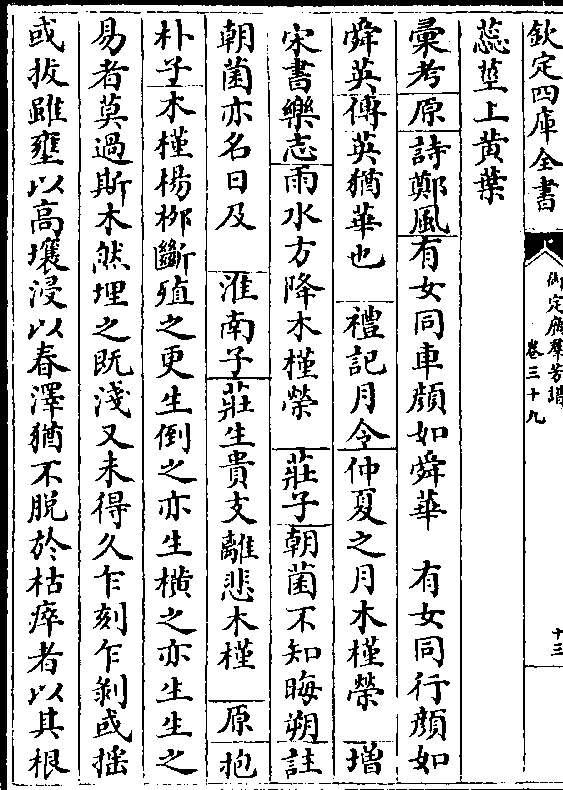 欽定四庫全書
御定廣羣芳譜
卷三十九
十三
蕊莖上黃葉
彙考原詩鄭風有女同車顔如舜華 有女同行顔如
舜英傳英猶華也 禮記月令仲夏之月木槿榮 增
宋書樂志雨水方降木槿榮 莊子朝菌不知晦朔註
朝菌亦名日及 淮南子莊生貴支離悲木槿 原抱
朴子木槿楊柳斷殖之更生倒之亦生橫之亦生生之
易者莫過斯木然埋之既淺又未得久乍刻乍剝或搖
或拔雖壅以高壤浸以春澤猶不脱於枯瘁者以其根